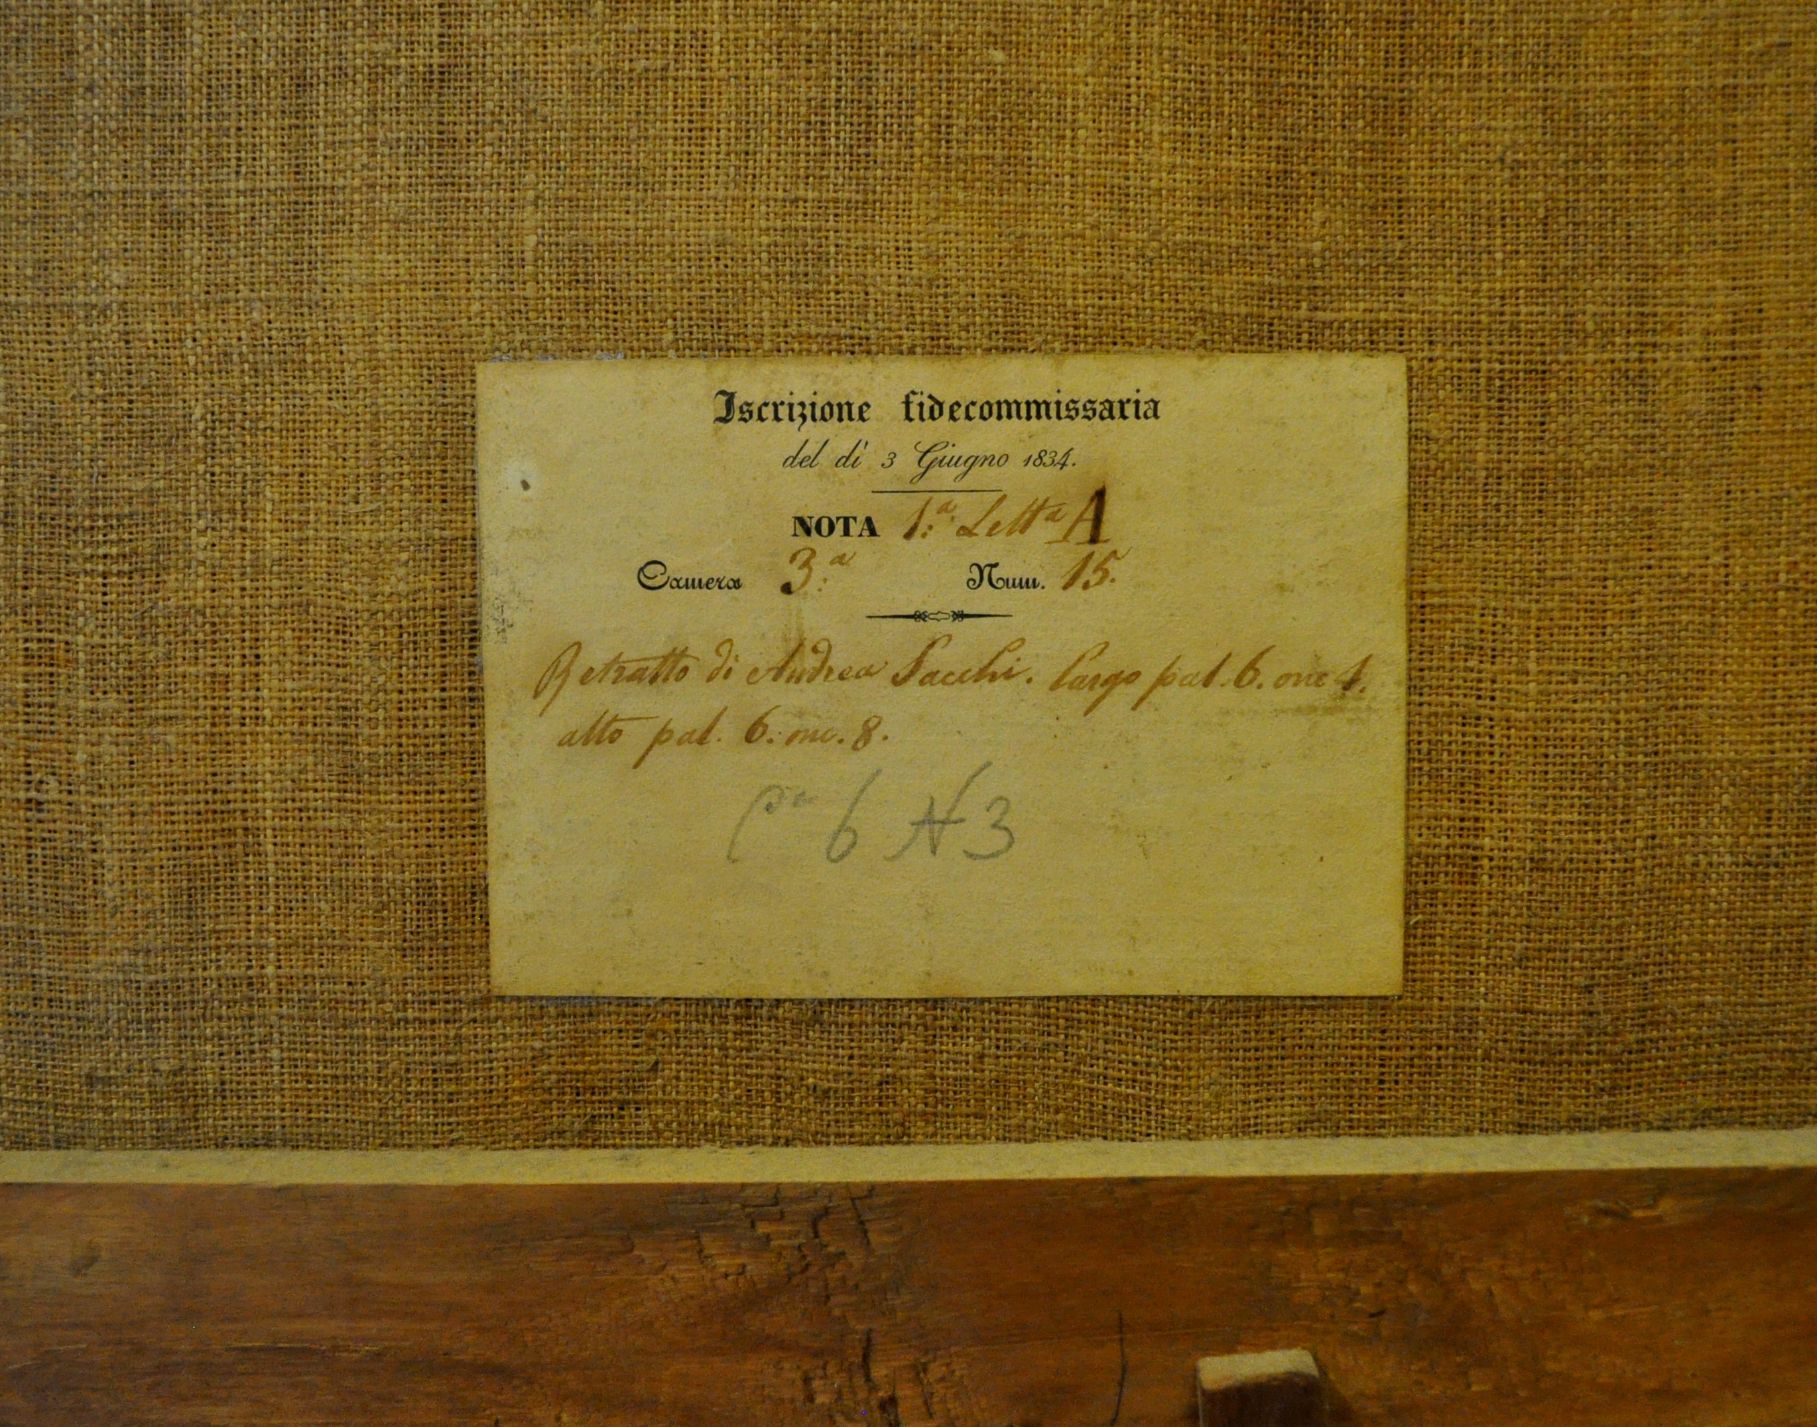 Iscrizione fidecommissaria
del dì 3 Giugno 1834.
NOTA 1.ª Lettª A
Camera 3.ª Num. 15.
Retratto di Andrea Sacchi. largo pal. 6. onc 1.
alto pal. 6. onc. 8.
6 N 3